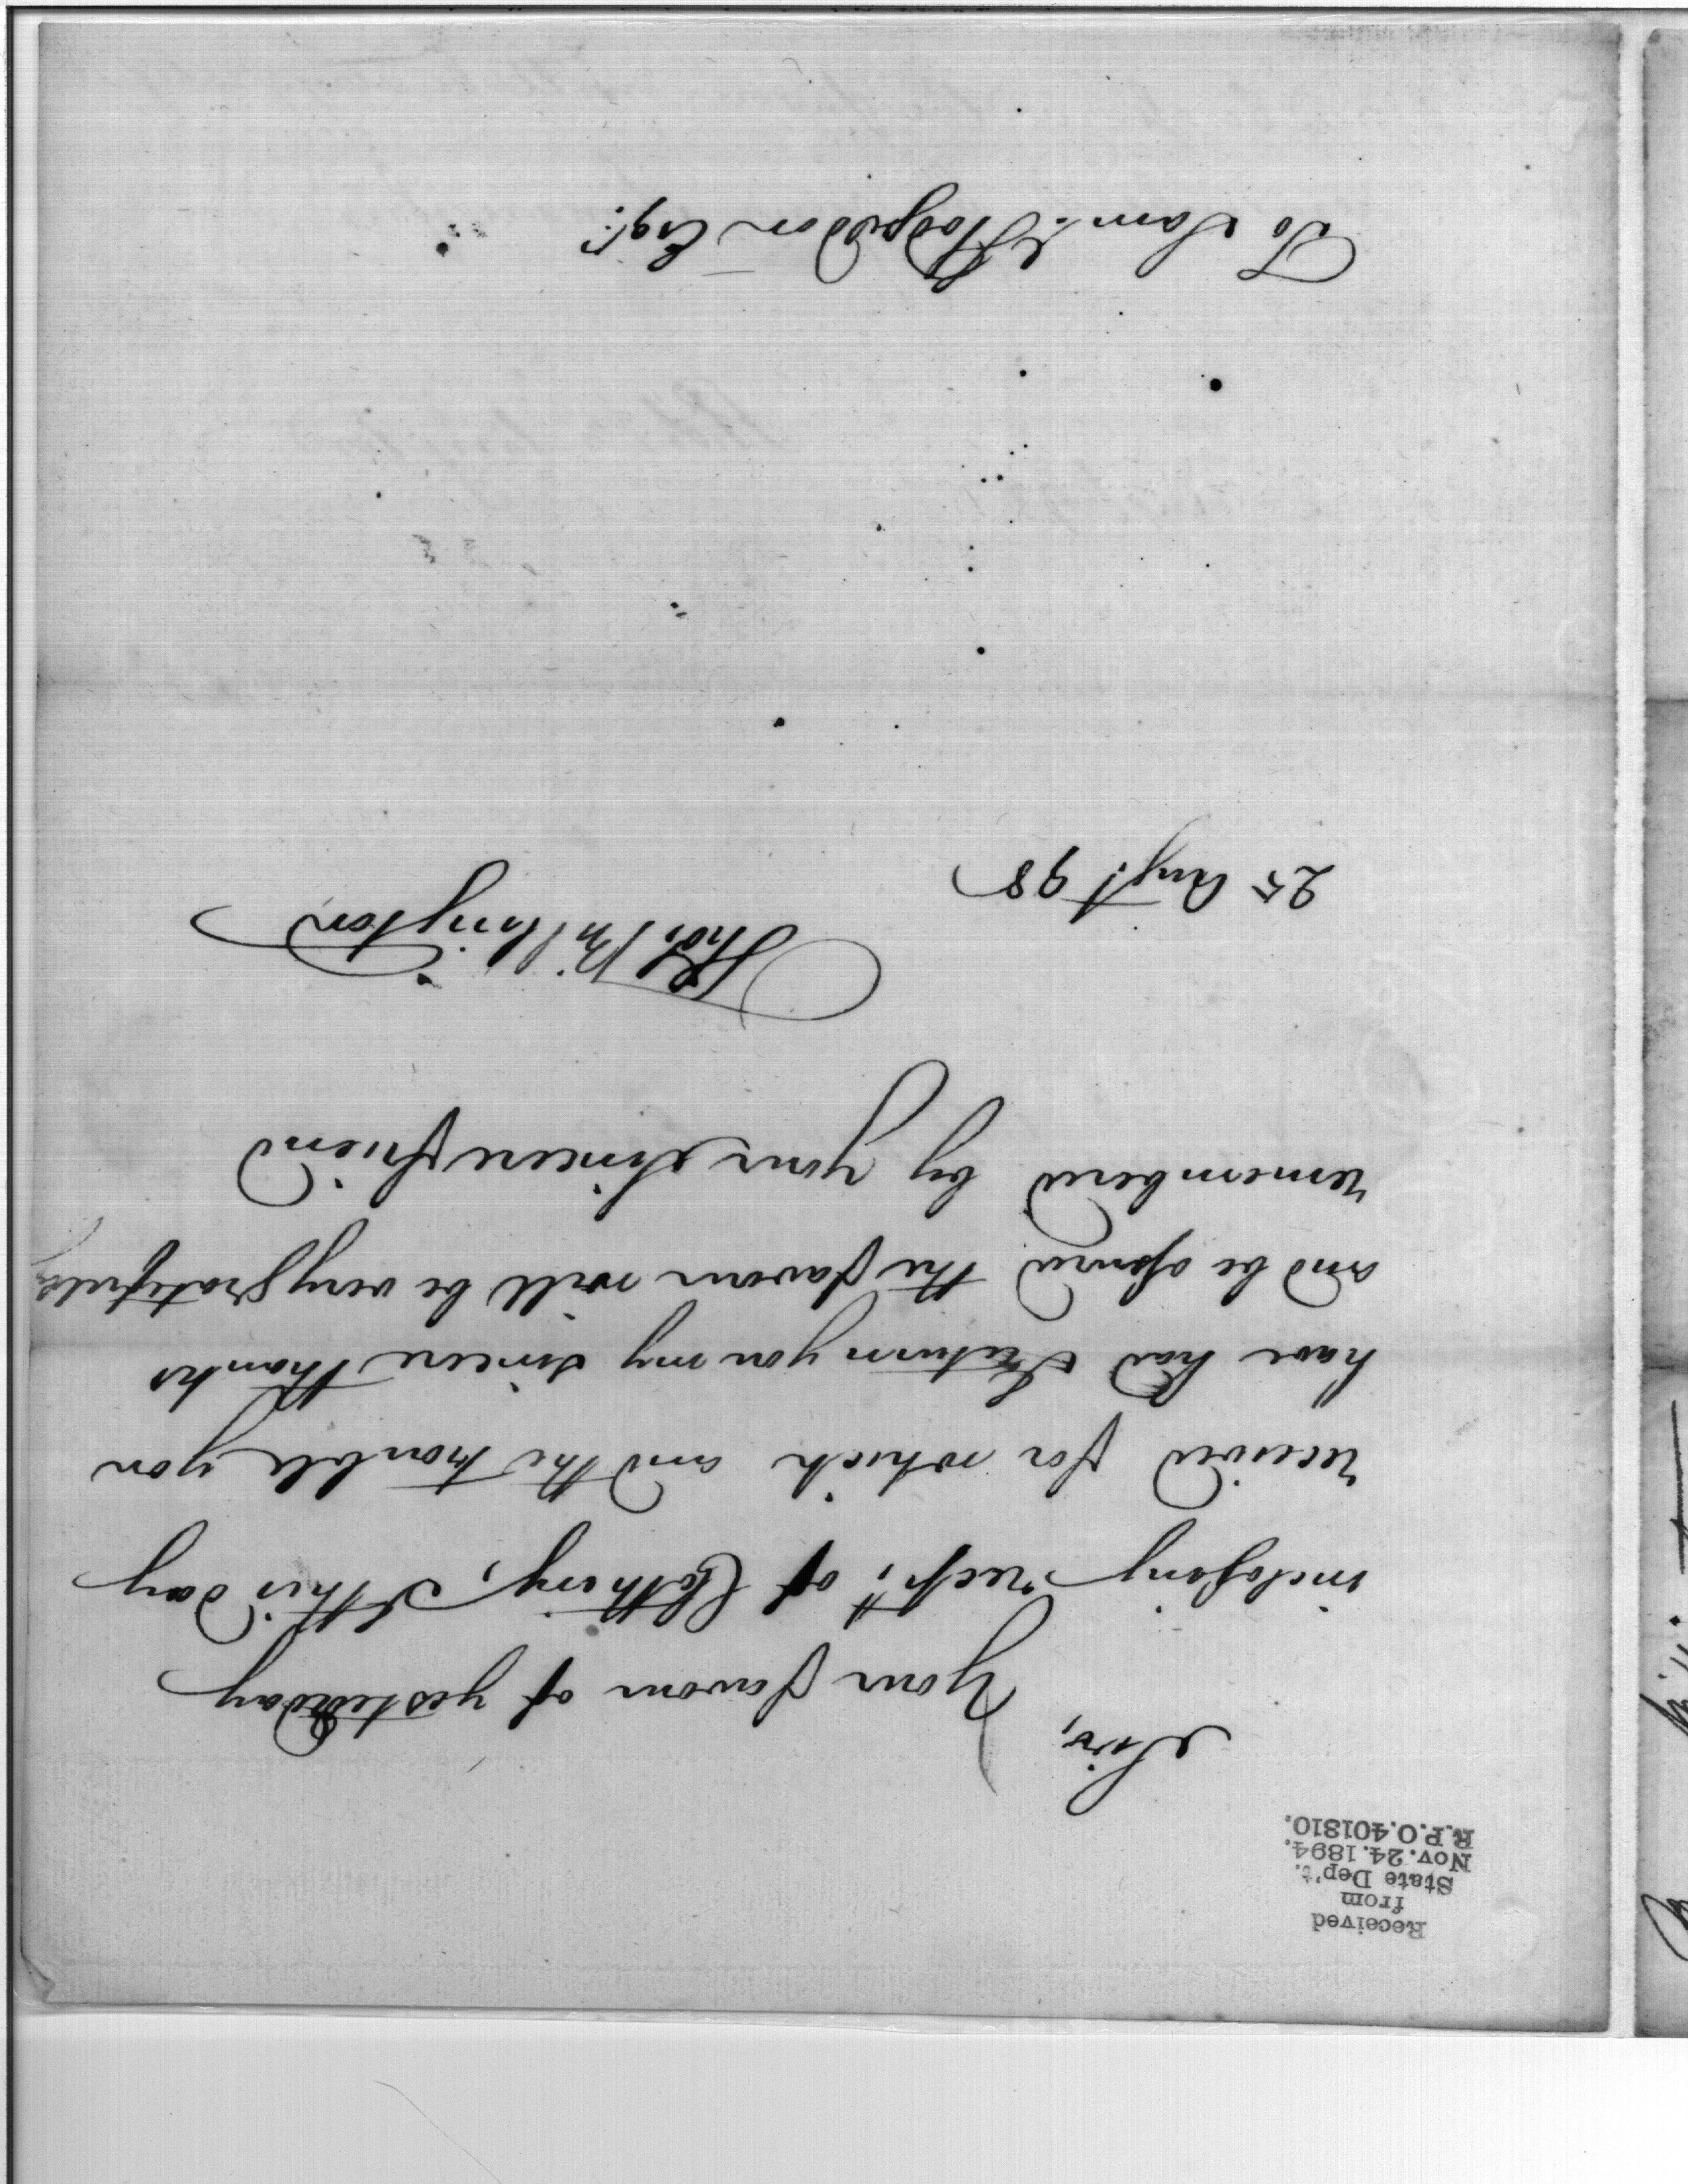 Received
from
State Dep't.
Nov. 24. 1894.
R.P.O. 401810.
Sir,
Your favour of yesterday
inclosing rect. of Clothing, I this day
received for which and the trouble you
have had I return you my sincere thanks
and be assured the favour will be very gratefully
remembered by your Sincere friend
Tho. Millington
25 Augt. 98
To Saml. Hodgsdon Esqr.